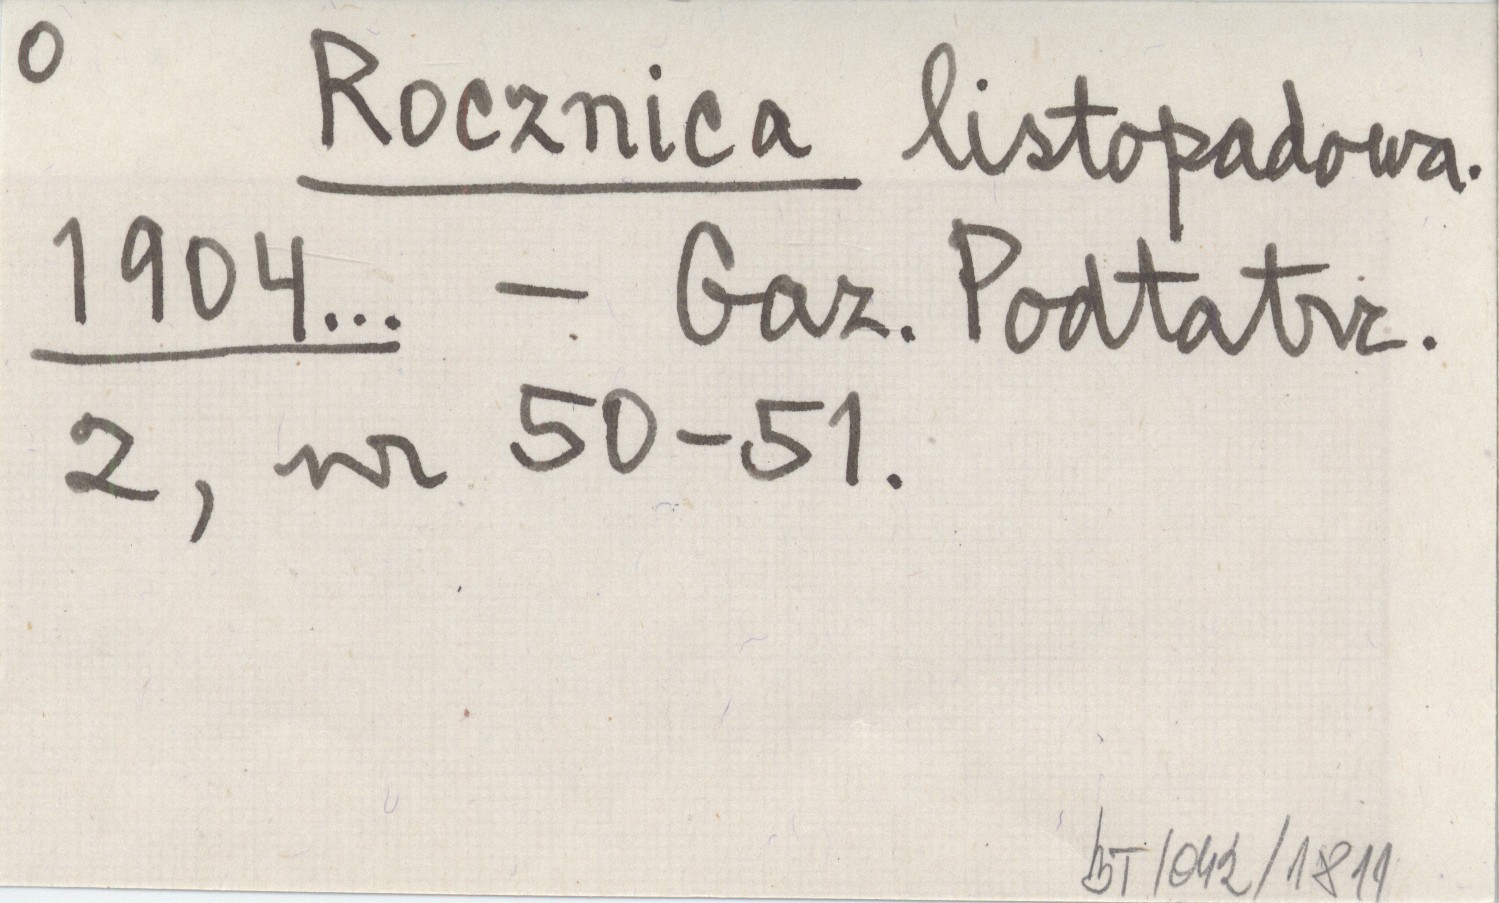 0 Rocznica listopadowa.
1904... - Gaz. Podtatrz.
2, nr 50-51.
BT/042/1811